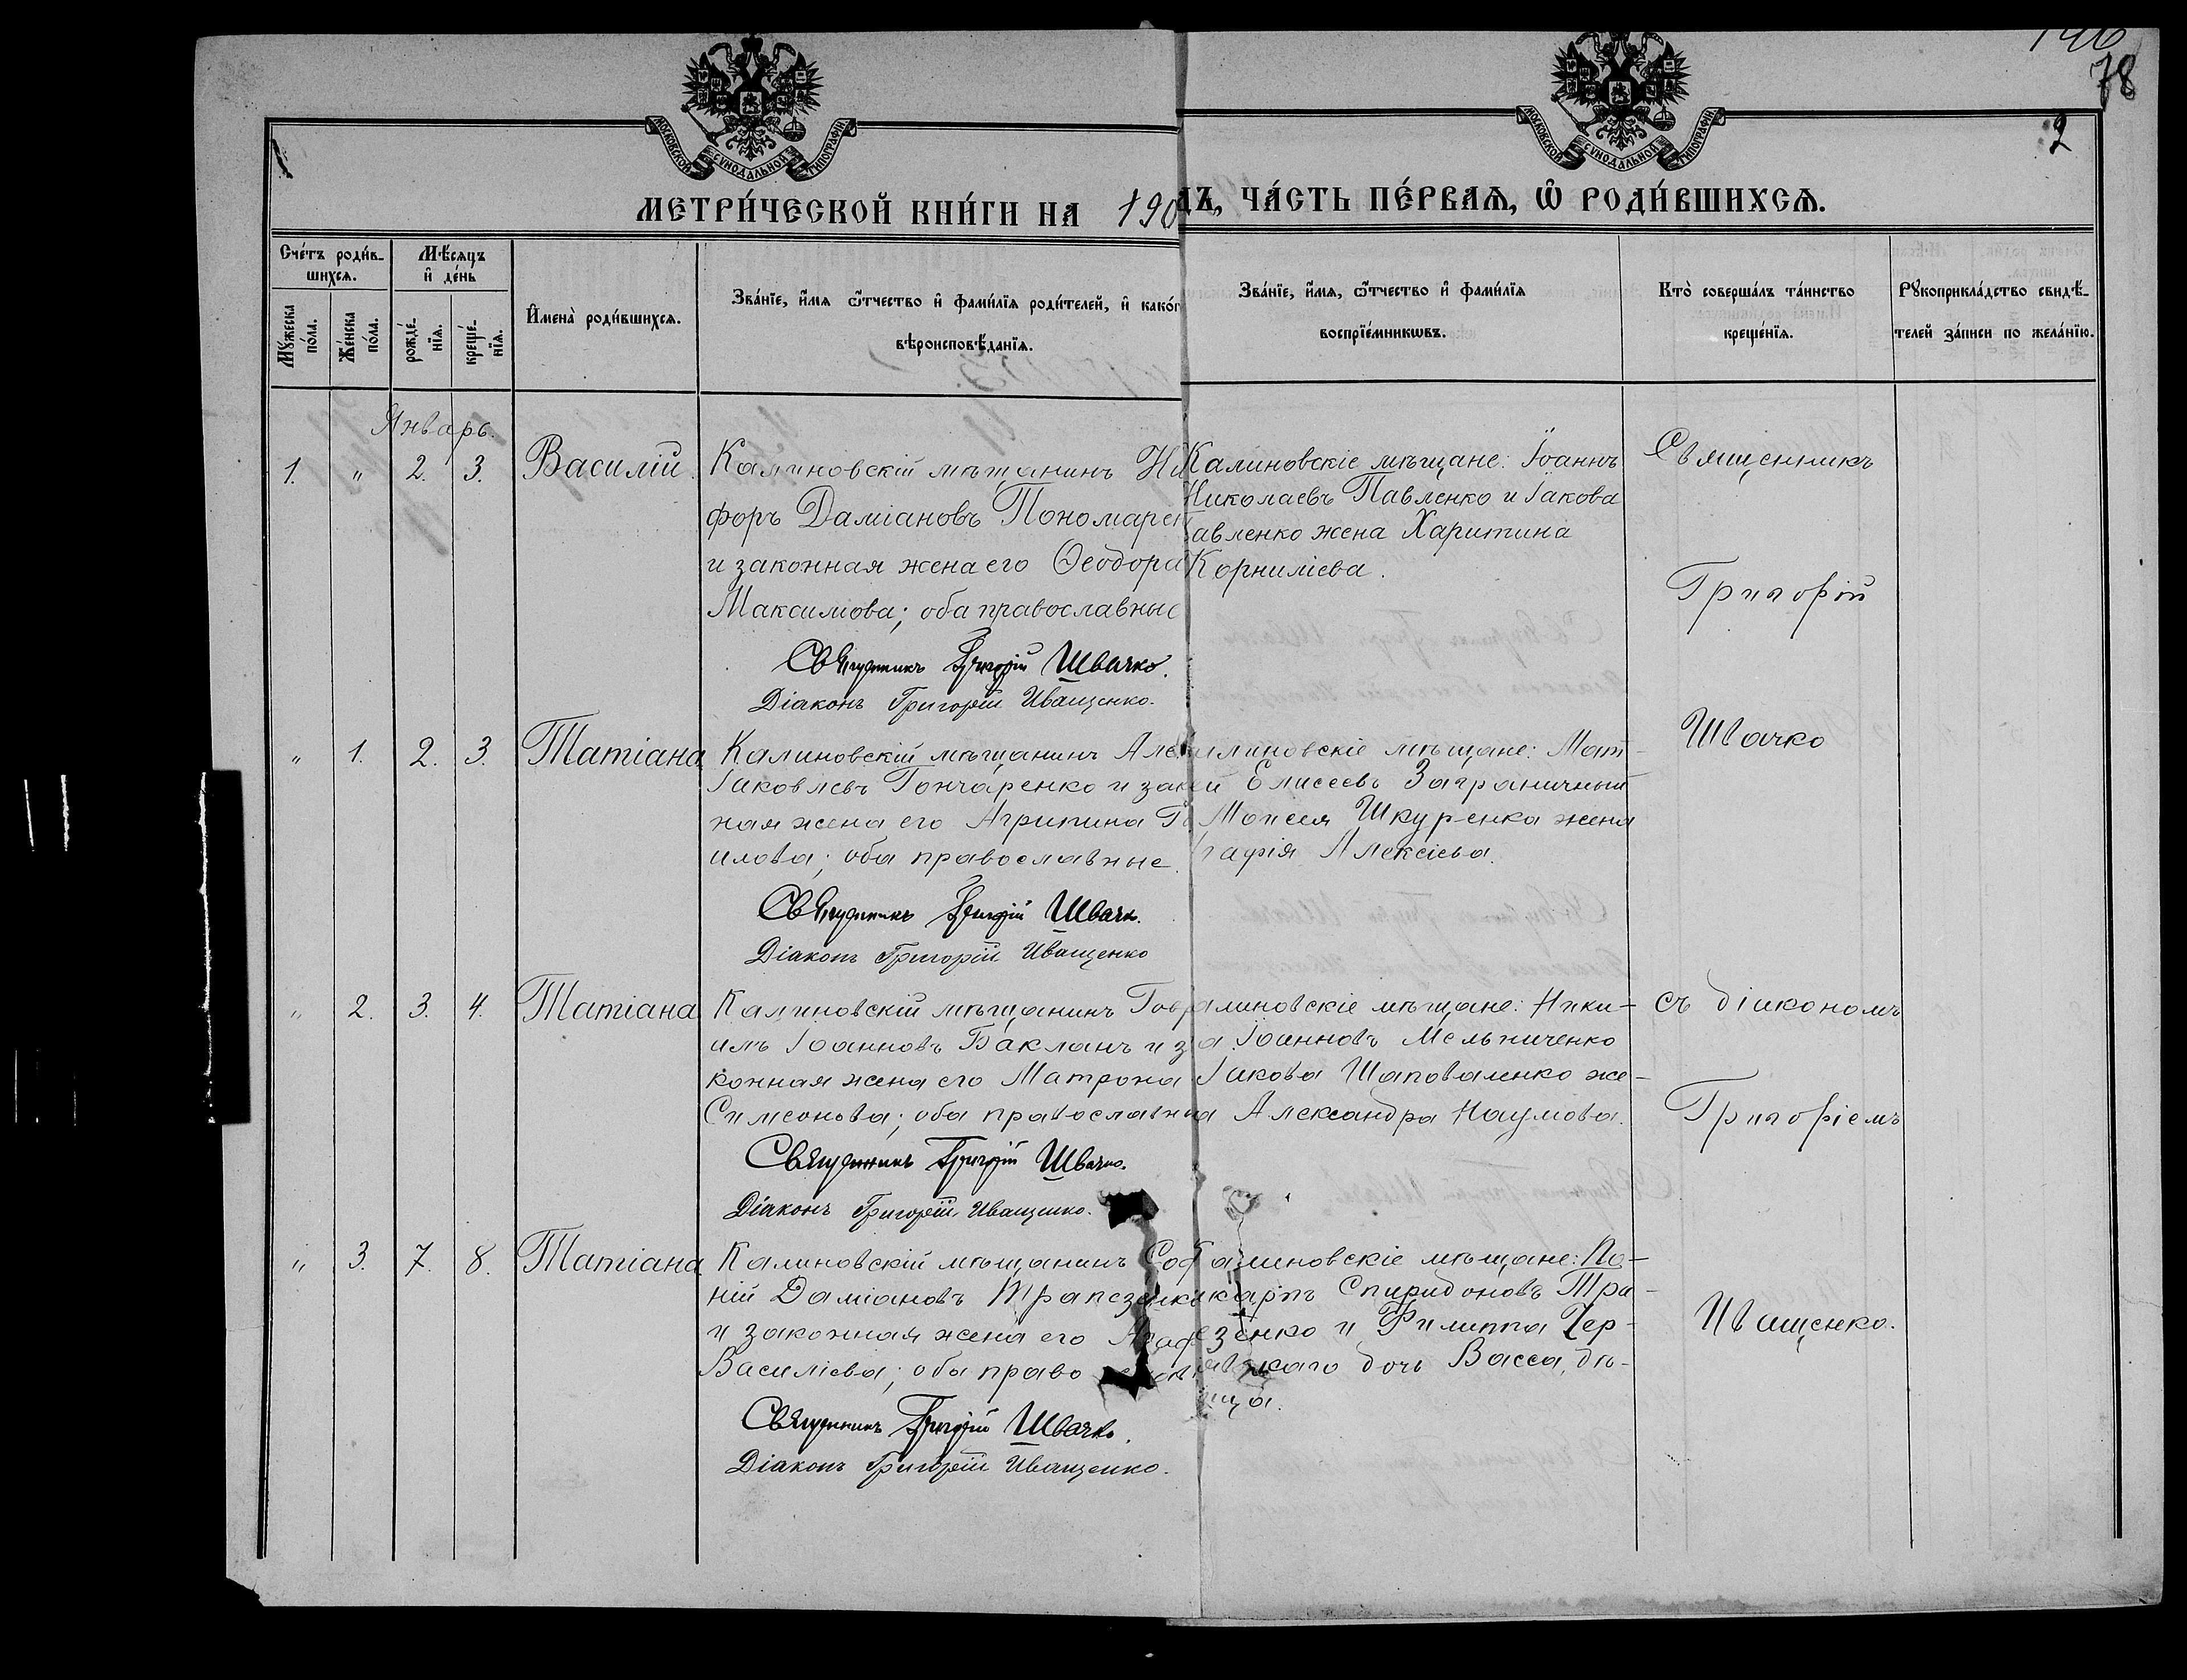 78
1
2
МОСКОВСКОЙ СѴНОДАЛЬНОЙ ТИПОГРАФІИ
МОСКОВСКОЙ СѴНОДАЛЬНОЙ ТИПОГРАФІИ
МЕТРИ́ЧЕСКОЙ КНИ́ГИ НА 190
ДЪ, ЧА́СТЬ ПЕ́РВАѦ, Ѽ РОДИ́ВШИХСѦ.
Сче́тъ роди́в-
шихсѧ.
Мѣ́сяцъ
и҆ де́нь
Мꙋ́жеска по́ла.
Же́нска по́ла.
рожде́-
нїѧ.
креще́-
нїѧ.
И҆мена̀ роди́вшихсѧ.
Зва́нїе, и҆́мѧ ѻ҆́тчество и҆ фами́лїѧ роди́телей, и҆ како́г
вѣроисповѣ́данїѧ.
Зва́нїе, и҆́мѧ, ѻ҆́тчество и҆ фами́лїѧ
воспрїе́мникѡвъ.
Кто̀ соверша́лъ та́инство
креще́нїѧ.
Рꙋкоприкла́дство свидѣ́-
телей за́писи по жела́нїю.
Январь.
1. " 2. 3. Василій.
Калиновскій мѣщанинъ Ни
форъ Даміановъ Пономарен
и законная жена его Ѳеодора
Максимова; оба православные
Священникъ Григорій Швачко.
Діаконъ Григорій Иващенко.
Калиновскіе мѣщане: Іоаннъ
Николаевъ Павленко и Іакова
авленко жена Харитина
Корниліева.
" 1. 2. 3. Татіана
Калиновскій мѣщанинъ Але
Іаковлевъ Гончаренко и зак
ная жена его Агрипина
илова; оба православные.
Священникъ Григорій Швачко.
Діаконъ Григорій Иващенко
линовскіе мѣщане: Мат-
ѳій Елисеевъ Заграничный
Моисея Шкуренка жена
рафія Алексіева.
" 2. 3. 4. Татіана
Калиновскій мѣщанинъ Гавр
илъ Іоанновъ Бакланъ и за
конная жена его Матрона
Симеонова; оба православны
Священникъ Григорій Швачко.
Діаконъ Григорій Иващенко.
алиновскіе мѣщане: Ники-
та Іоанновъ Мельниченко
Іакова Шаповаленко же-
на Александра Наумова.
" 3. 7. 8. Татіана
Калиновскій мѣщанинъ Соф
ній Даміановъ Трапезенко
и законная жена его Агаѳ
Василіева; оба право
Священникъ Григорій Швачко.
Діаконъ Григорій Иващенко.
алиновскіе мѣщане: По-
ликарпъ Спиридоновъ Тра-
пезенко и Филиппа Чер-
скаго дочь Васса, дѣ-
вица.
Священникъ
Григорій
Швачко
съ діакономъ
Григоріемъ
Иващенко.